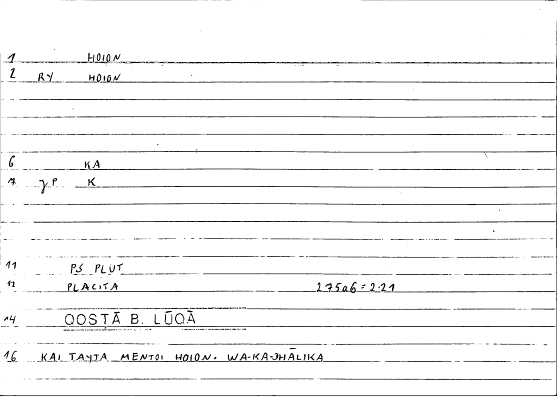 1 HOION
2 RY HOION
6 KA
7 γP K
11 PS PLUT
12 PLACITA 275a6=2.21
14 QOSTĀ B. LŪQĀ
16 KAI TAYTA MENTOI HOION. WA-KA-JHĀLIKA